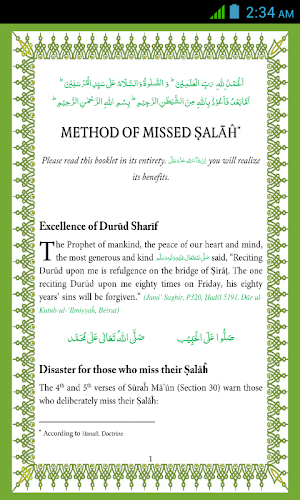 2:34 AM
اَلْحَمْدُ لِلّٰهِ رَبِّ الْعٰلَمِيْنَ ط وَ الصَّلٰوةُ وَالسَّلَامُ عَلٰى سَيِّدِ الْمُرْسَلِيْنَ ط
اَمَّا بَعْدُ فَاَعُوْذُ بِاللّٰهِ مِنَ الشَّيْطٰنِ الرَّجِيْمِ ط بِسْمِ اللّٰهِ الرَّحْمٰنِ الرَّحِيْمِ ط
METHOD OF MISSED ṢALĀĤ*
Please read this booklet in its entirety. اِنْ شَآءَاللّٰه عَزَّوَجَلَّ you will realize
its benefits.
Excellence of Durūd Sharīf
The Prophet of mankind, the peace of our heart and mind,
the most generous and kind صَلَّى اللهُ تَعَالٰى عَلَيْهِ وَاٰلِهٖ وَسَلَّم said, “Reciting
Durūd upon me is refulgence on the bridge of Ṣirāṭ. The one
reciting Durūd upon me eighty times on Friday, his eighty
years’ sins will be forgiven.” (Jami’ Saghir, P320, Ḥadiš 5191, Dār-ul-
Kutub-ul-’Ilmiyyaĥ, Beirut)
صَلُّوْا عَلَى الْحَبِيْب صَلَّى اللهُ تَعَالٰى عَلٰى مُحَمَّد
Disaster for those who miss their Ṣalāĥ
The 4th and 5th verses of Sūraĥ Mā’ūn (Section 30) warn those
who deliberately miss their Ṣalāĥ:
* According to Ḥanafī Doctrine
1